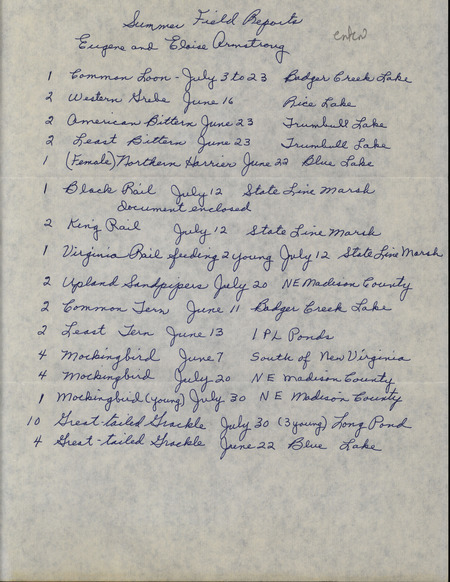 Summer Field Reports
Eugene and Eloise Armstrong
1 Common Loon - July 3 to 23 Badger Creek Lake
2 Western Grebe June 16 Rice Lake
2 American Bittern June 23 Trumbull Lake
2 Least Bittern June 23 Trumbull Lake
1 (Female) Northern Harrier June 22 Blue Lake
1 Black Rail July 12 State Line Marsh
Document enclosed
2 King Rail July 12 State Line Marsh
1 Virginia Rail feeding 2 young July 12 State Line Marsh
2 Upland Sandpipers July 20 NE Madison County
2 Common Tern June 11 Badger Creek Lake
2 Least Tern June 13 IPL Ponds
4 Mockingbird June 7 South of New Virginia
4 Mockingbird July 20 NE Madison County
1 Mockingbird (young) July 30 NE Madison County
10 Great-tailed Grackle July 30 (3 young) Long Pond
4 Great-tailed Grackle June 22 Blue Lake